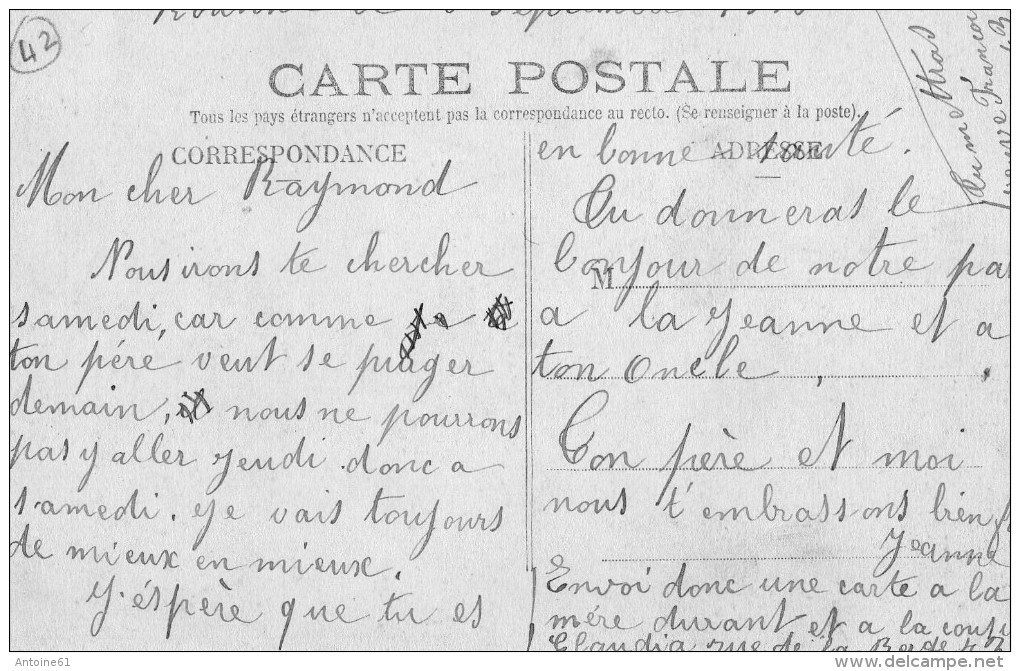 42
septembre
CARTE POSTALE
Tous les pays étrangers n'acceptent pas la correspondance au recto. (Se renseigner à la poste).
CORRESPONDANCE
Mon cher Raymond
Nous irons te chercher
samedi, car comme
ton père veut se purger
demain, nous ne pourrons
pas y aller jeudi. donc a
samedi. Je vais toujours
de mieux en mieux.
J'éspère que tu es
ADRESSE
en bonne santé.
Tu donneras le
bonjour de notre par
M
a la Jeanne et a
ton Oncle,
Ton père et moi
nous t'embrassons bien
Jeanne
Envoi donc une carte a la
mére durant et a la
Claudia rue de la
Tu mettras
Antoine61
delcampe.net